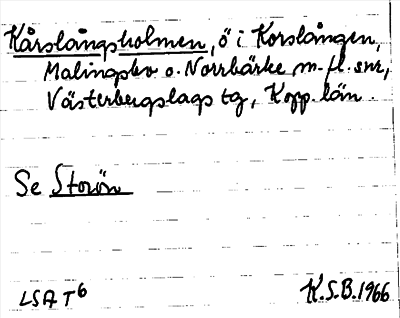 Kårslångsholmen, ö i Korslången,
Malingsbo o. Norrbärke m. fl. snr,
Västerbergslags tg, Kopp. län.
Se Storön
LSA T6 K.S.B. 1966